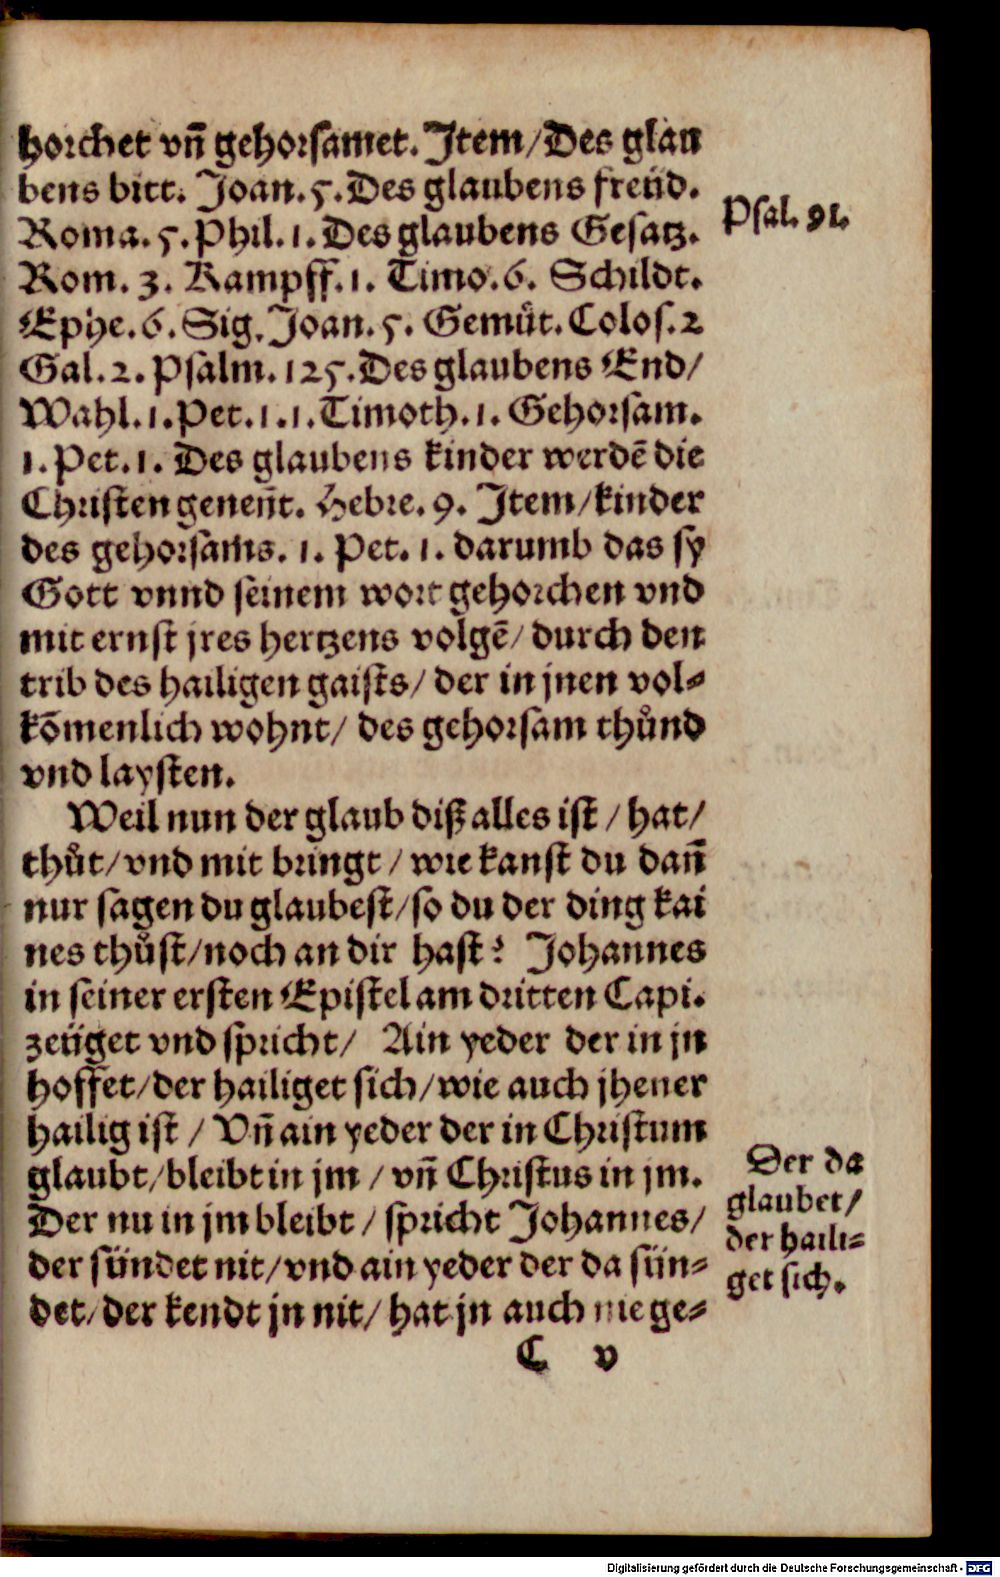 horchet vn̄ gehorsamet. Item/Des glau
bens bitt. Joan. 5. Des glaubens freüd.
Roma. 5. Phil. 1. Des glaubens Gesatz.
Psal. 91.
Rom. 3. Kampff. 1. Timo. 6. Schildt.
Ephe. 6. Sig. Joan. 5. Gemuͤt. Colos. 2
Gal. 2. Psalm. 125. Des glaubens End/
Wahl. 1. Pet. 1. 1. Timoth. 1. Gehorsam.
1. Pet. 1. Des glaubens kinder werdē die
Christen genen̄t. Hebre. 9. Item/kinder
des gehorsams. 1. Pet. 1. darumb das sy
Gott vnnd seinem wort gehorchen vnd
mit ernst jres hertzens volgē/ durch den
trib des hailigen gaists/ der in jnen vol⸗
kōmenlich wohnt/ des gehorsam thuͦnd
vnd laysten.
Weil nun der glaub diß alles ist / hat/
thuͦt/vnd mit bringt / wie kanst du dan̄
nur sagen du glaubest/so du der ding kai
nes thuͦst/noch an dir hast? Johannes
in seiner ersten Epistel am dritten Capi.
zeüget vnd spricht/ Ain yeder der in jn
hoffet/der hailiget sich/wie auch jhener
hailig ist / Vn̄ ain yeder der in Christum
glaubt/bleibt in jm / vn̄ Christus in jm.
Der nu in jm bleibt / spricht Johannes/
der sündet nit/vnd ain yeder der da sün⸗
det/der kendt jn nit/ hat jn auch nie ge⸗
Der da
glaubet/
der haili⸗
get sich.
C v
Digitalisierung gefördert durch die Deutsche Forschungsgemeinschaft - DFG